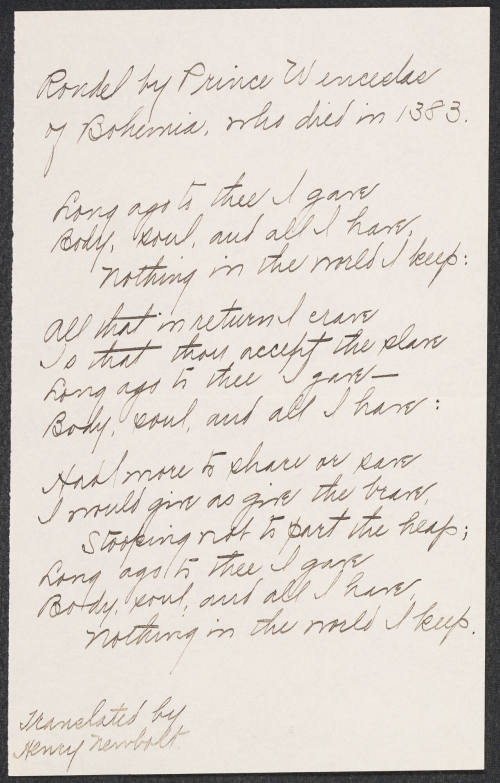 Rondel by Prince Wenceslas
of Bohemia, who died in 1383.
Long ago to thee I gave
Body, soul, and all I have,
Nothing in the world I keep:
All that in return I crave
Is that thou accept the slave
Long ago to thee I gave—
Body, soul, and all I have:
Had I more to share or save
I would give as give the brave,
Stooping not to part the heap;
Long ago to thee I gave
Body, soul, and all I have,
Nothing in the world I keep.
Translated by
Henry Newbolt.